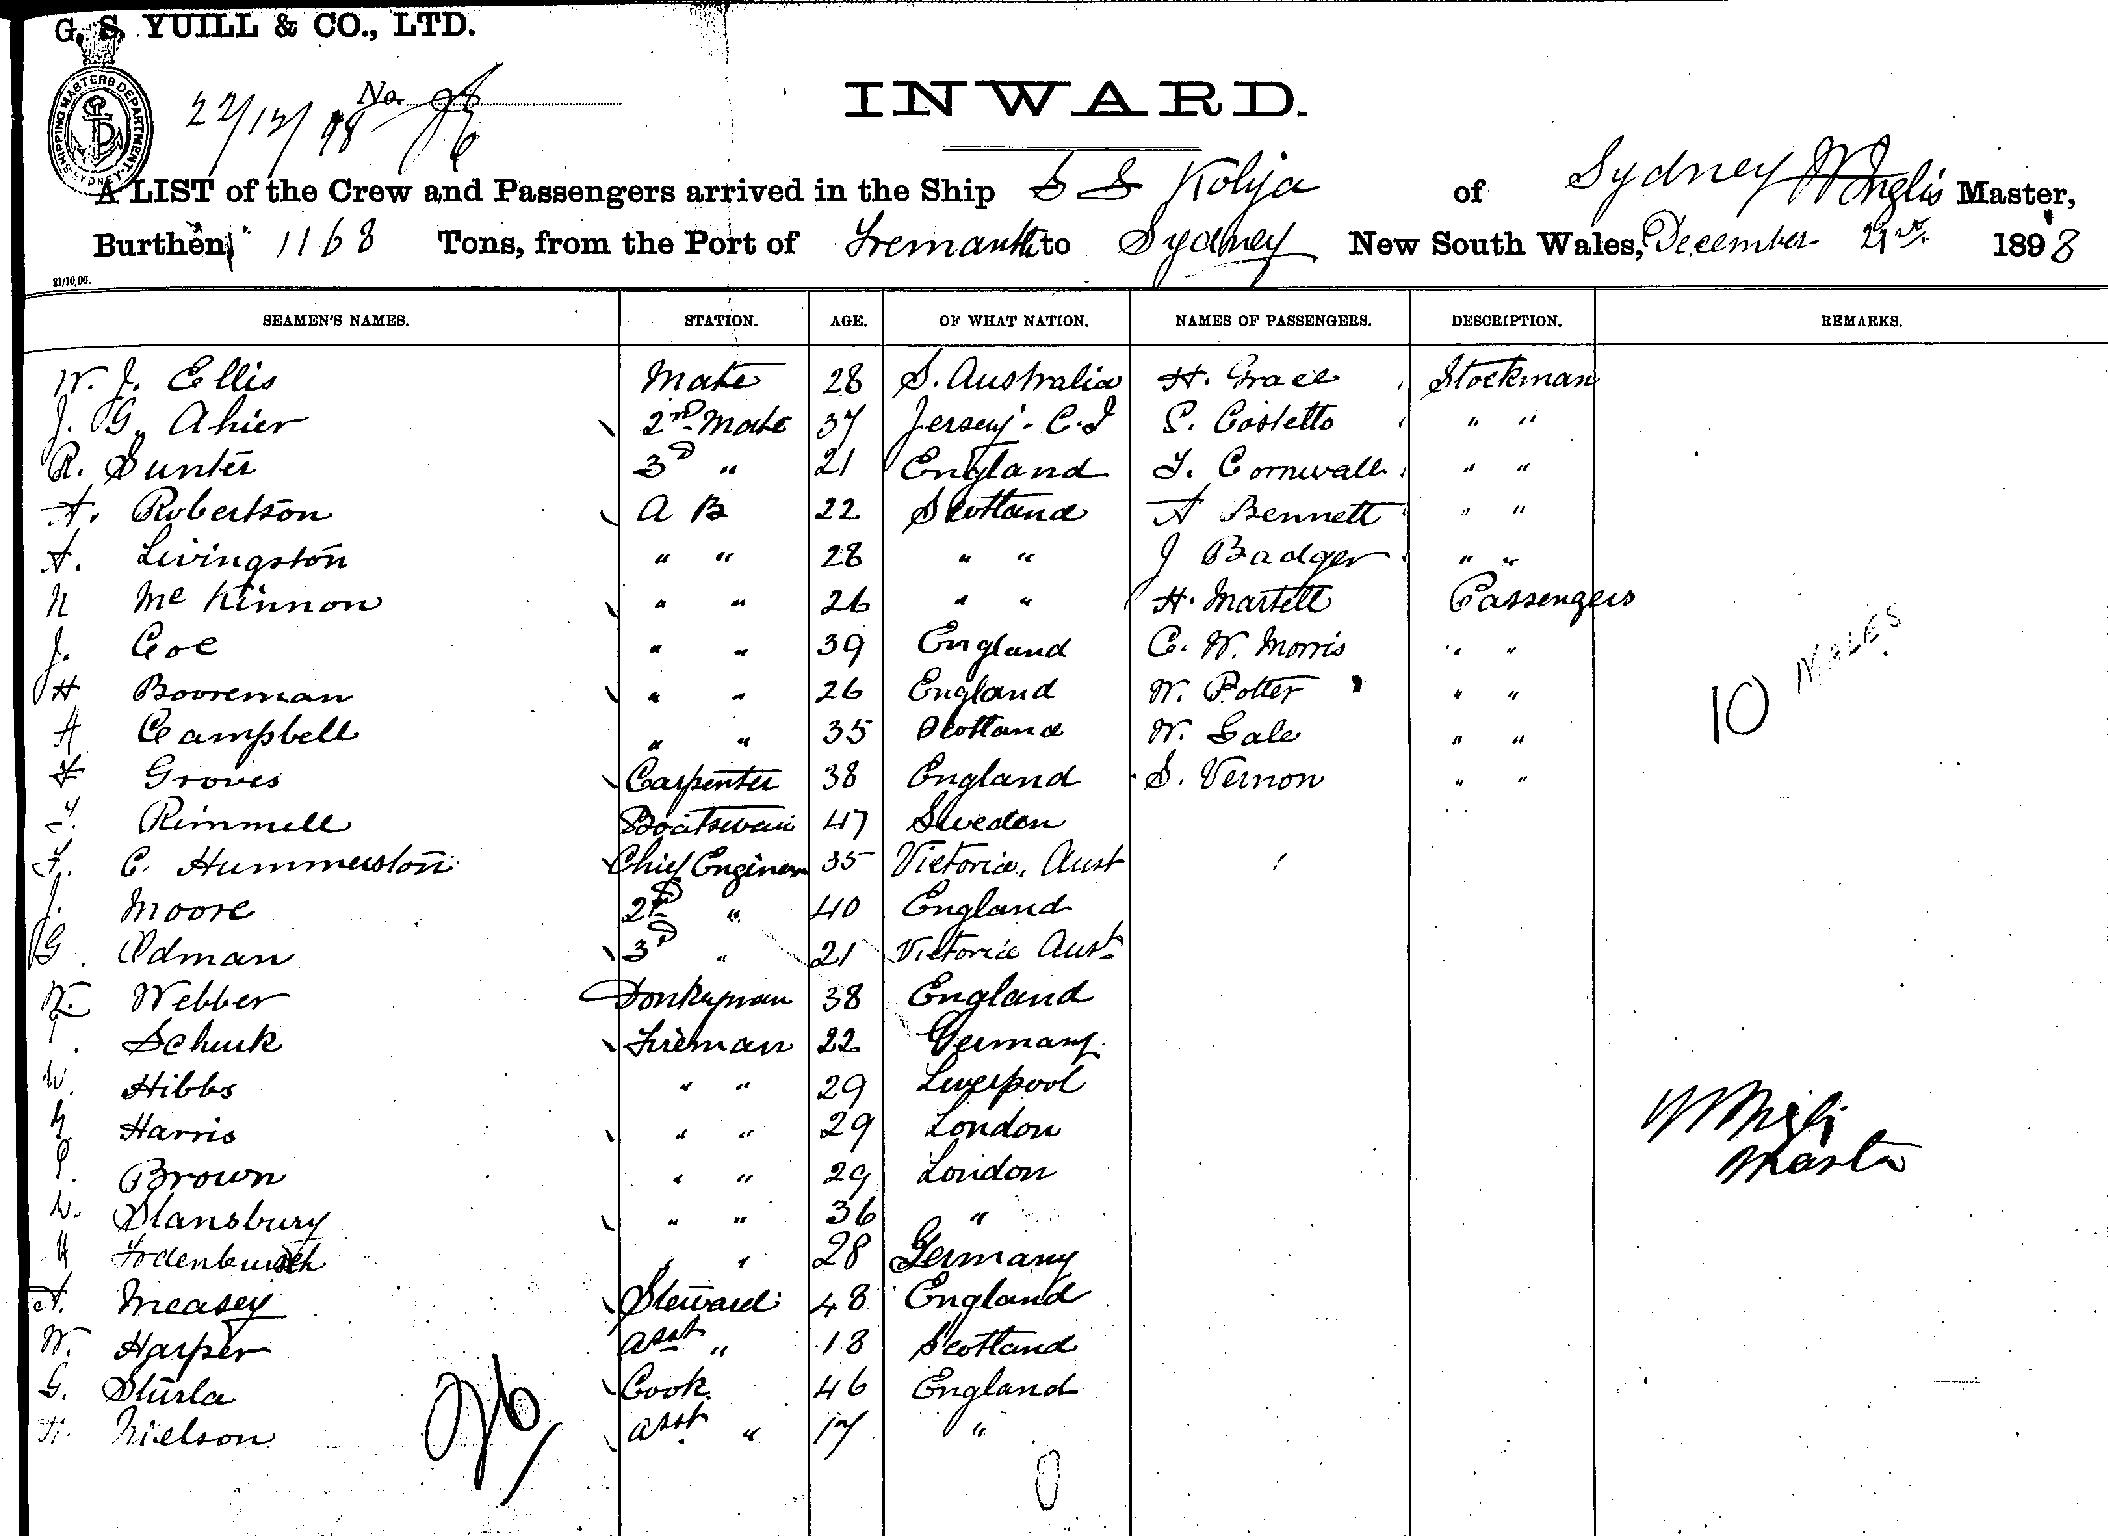 G. S. YUILL & CO., LTD.
SHIPPING MASTERS DEPARTMENT SYDNEY
22/12/98 No. 26
INWARD.
A LIST of the Crew and Passengers arrived in the Ship S S Kolya of Sydney W Inglis Master,
Burthen, 1168 Tons, from the Port of Fremantle to Sydney New South Wales, December 21st 1898
21/10,96.
SEAMEN'S NAMES. STATION. AGE. OF WHAT NATION. NAMES OF PASSENGERS. DESCRIPTION. REMARKS.
W. J. Ellis Mate 28 S. Australia H. Grace Stockman
J. G. Ahier 2nd Mate 37 Jersey. C.I S. Costetto " "
R. Sunter 3D " 21 England T. Cornwall " "
A. Robertson A B 22 Scotland A Bennett " "
A. Livingston " " 28 " " J Badger " "
N McKinnon " " 26 " " H. Martell Passengers
J. Coe " " 39 England C. W. Morris " "
H Booreman " " 26 England W. Potter " "
A Campbell " " 35 Scotland W. Gale " "
H Groves Carpenter 38 England S. Vernon " "
10 MALES
T. Rimmell Boatswain 47 Sweden
F. C. Hummerston Chief Engineer 35 Victoria. Aust
J. Moore 2nd " 40 England
G. Odman 3D " 21 Victoria Aust.
W. Webber Donkyman 38 England
Schuck Fireman 22 Germany
W. Hibbs " " 29 Liverpool
Harris " " 29 London
Brown " " 29 London
W. Stansbury " " 36 "
Germany 28 " "
A. Measey Steward 48 England
W. Harper Asst " 18 Scotland
G. Sturla Cook 46 England
Nielson Asst " 17 "
26
W Inglis
Master
0